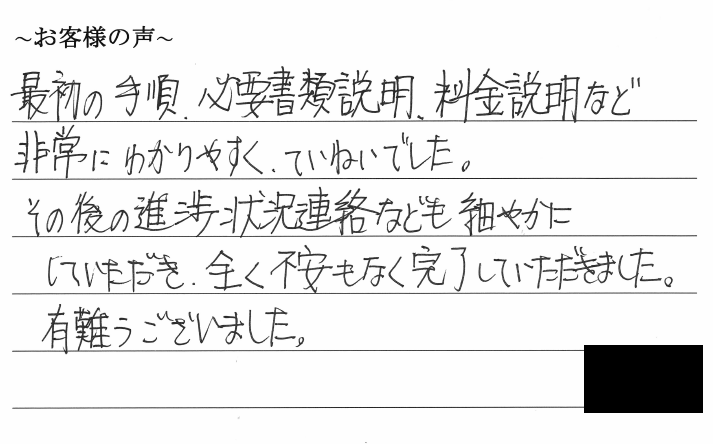 ~お客様の声~
最初の手順、必要書類説明、料金説明など
非常にわかりやすく、ていねいでした。
その後の進渉状況連絡なども細やかに
していただき、全く不安もなく完了していただきました。
有難うございました。